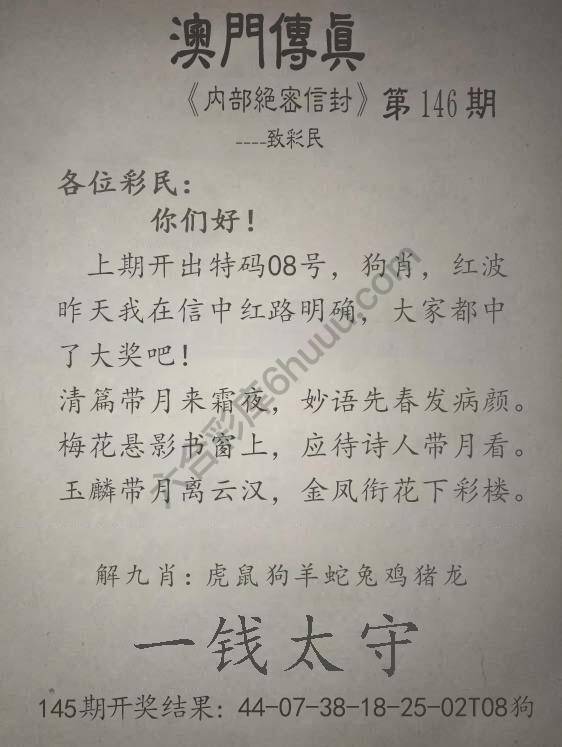 澳門傳真
《内部絕密信封》第146期
----致彩民
各位彩民：
你们好！
上期开出特码08号，狗肖，红波
昨天我在信中红路明确，大家都中
了大奖吧！
清篇带月来霜夜，妙语先春发病颜。
梅花悬影书窗上，应待诗人带月看。
玉麟带月离云汉，金凤衔花下彩楼。
解九肖：虎鼠狗羊蛇兔鸡猪龙
一钱太守
145期开奖结果：44-07-38-18-25-02T08狗
六合彩库6huuu.com